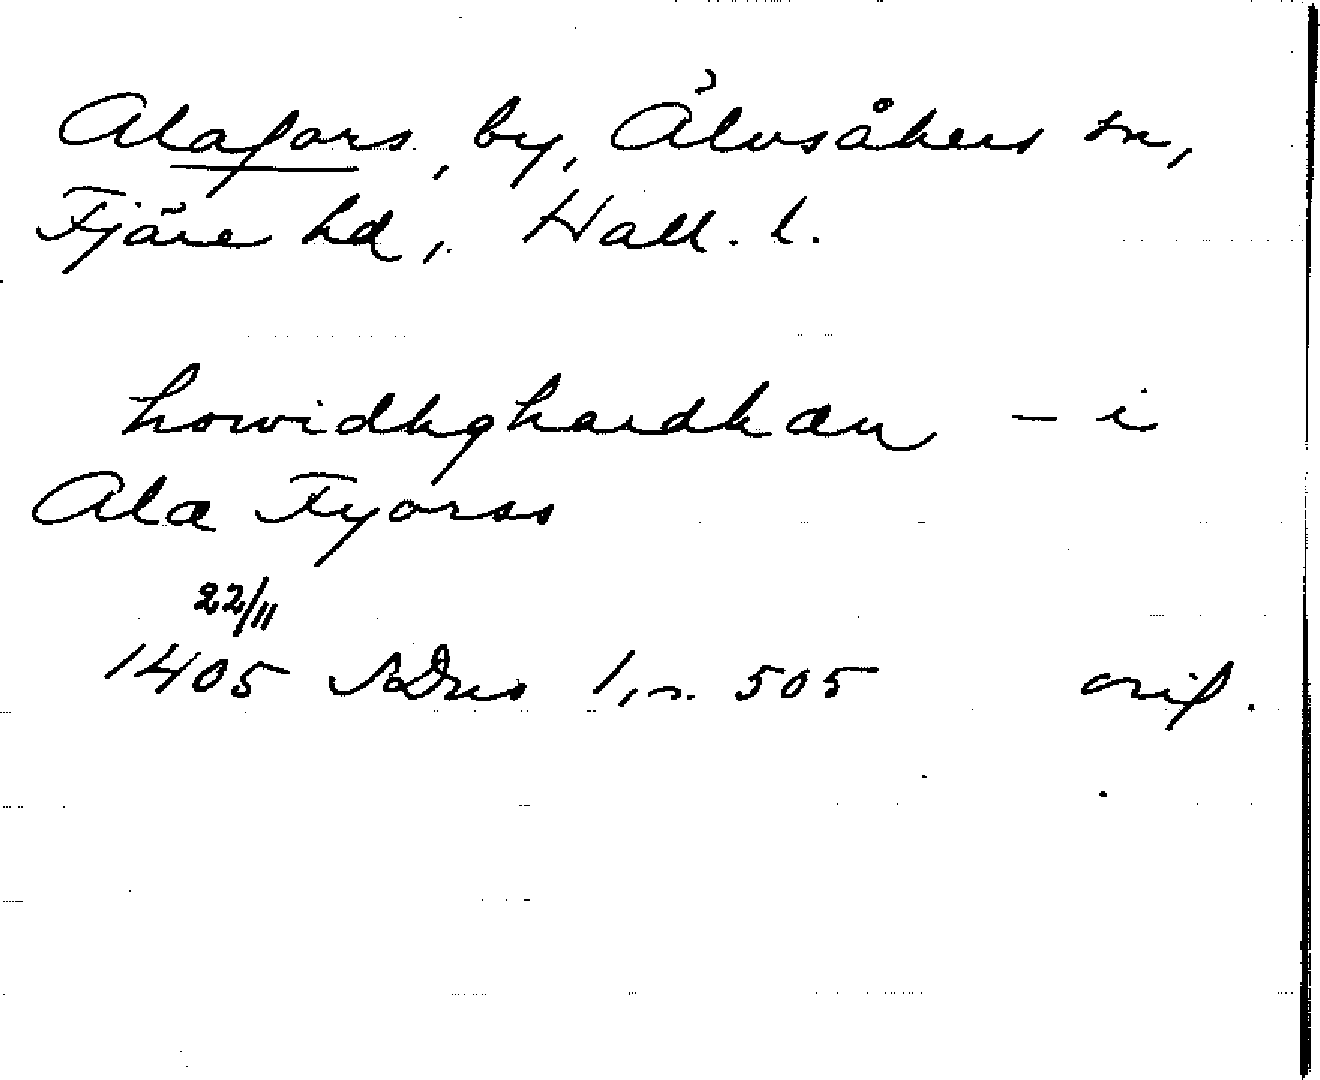 Alafors, by, Älvsåkers sn,
Fjäre hd, Hall. l.
howidhghardhæn – i
Ala Fyorss
22/11
1405 SDns 1, n. 505 orig.